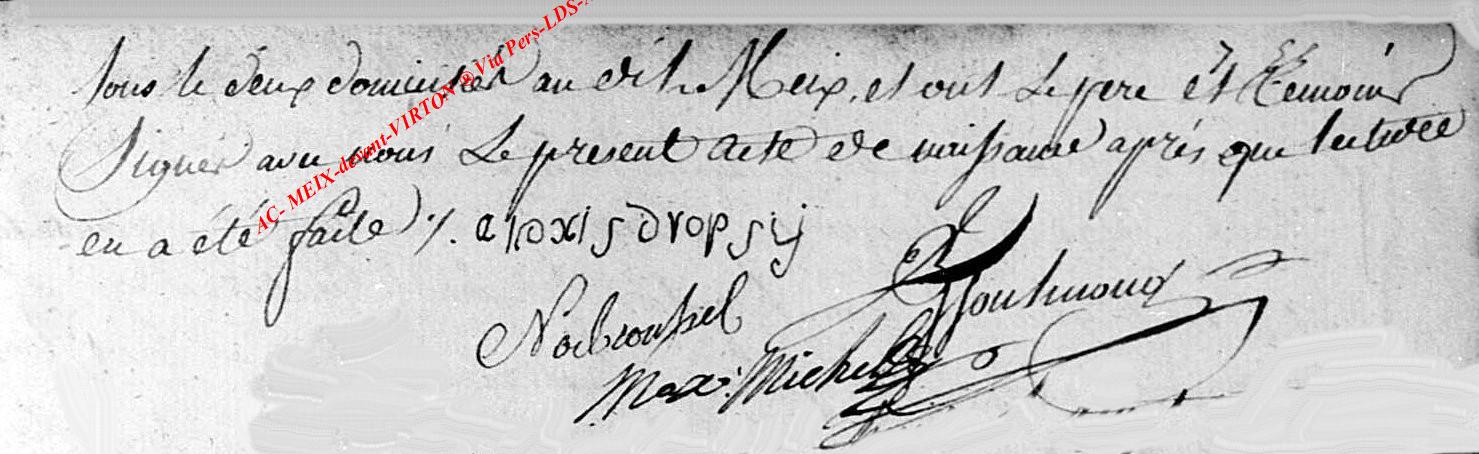 tous le deux domicilies au dit Meix, et ont Le pere et temoins
Signés avec nous Le present acte de naissance après que lecture
en a été faite /. alexis dropsij
Noel roussel
Max: Michel
AC- MEIX-devant-VIRTON®Vid Pers-LDS-